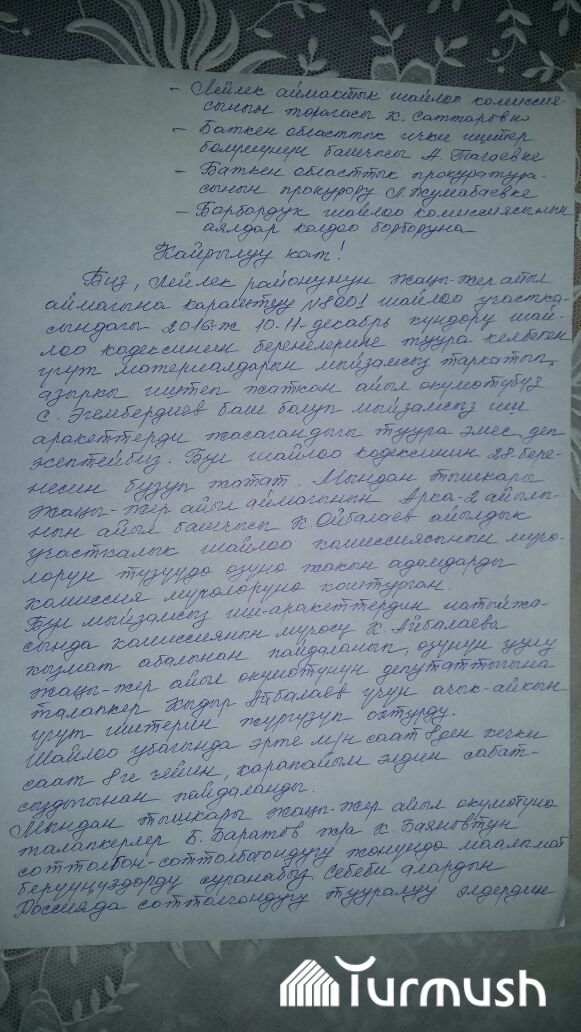 - Лейлек аймактык шайлоо комиссия-
сынын төрагасы К. Саттаровго
- Баткен областтык ички иштер
бөлүмүнүн башчысы А. Тагаевке
- Баткен областтык прокуратура-
сынын прокурору Л. Жумабаевке
- Борбордук шайлоо комиссиясынын
аялдар колдоо борборуна
Кайрылуу кат!
Биз, Лейлек районунун Жаңы-Жер айыл
аймагына караштуу №8001 шайлоо участка-
сындагы 2016-ж 10-11-декабрь күндөрү шай-
лоо кодексинин беренелерине туура келбеген
үгүт материалдарын мыйзамсыз таркатып,
азыркы иштеп жаткан айыл окумотубуз
С. Эгембердиев баш болуп мыйзамсыз иш
аракеттерди жасагандыгы туура эмес деп
эсептейбиз. Бул шайлоо кодексинин 28-бере-
несин бузуп жатат. Мындан тышкары
Жаңы-Жер айыл аймагынын Арка-2 айылы-
нын айыл башчысы К. Ойбалаев айылдык
участкалык шайлоо комиссиясынын мүчө-
лөрүн түзүүдө өзүнө жакын адамдарды
комиссия мүчөлөрүнө коштурган.
Бул мыйзамсыз иш-аракеттердин натыйжа-
сында комиссиянын мүчөсү К. Айбалаева
кызмат абалынан пайдаланып, өзүнүн уулу
Жаңы-Жер айыл окумотунун депутаттыгына
талапкер Кыдыр Айбалаев үчүн ачык-айкын
үгүт иштерин жүргүзүп октурду.
Шайлоо убагында эрте м/н саат 8ден кечки
саат 8ге чейин, карапайым элдин сабат-
сыздыгынан пайдаланды.
Мындан тышкары Жаңы-Жер айыл окумотуна
талапкерлер Б. Баратов жа К. Баяновтун
соттолгон-соттолбогондугу жөнүндө маалымат
берүүңүздөрдү суранабыз. Себеби алардын
Россияда соттолгондугу тууралуу элдердин
Turmush